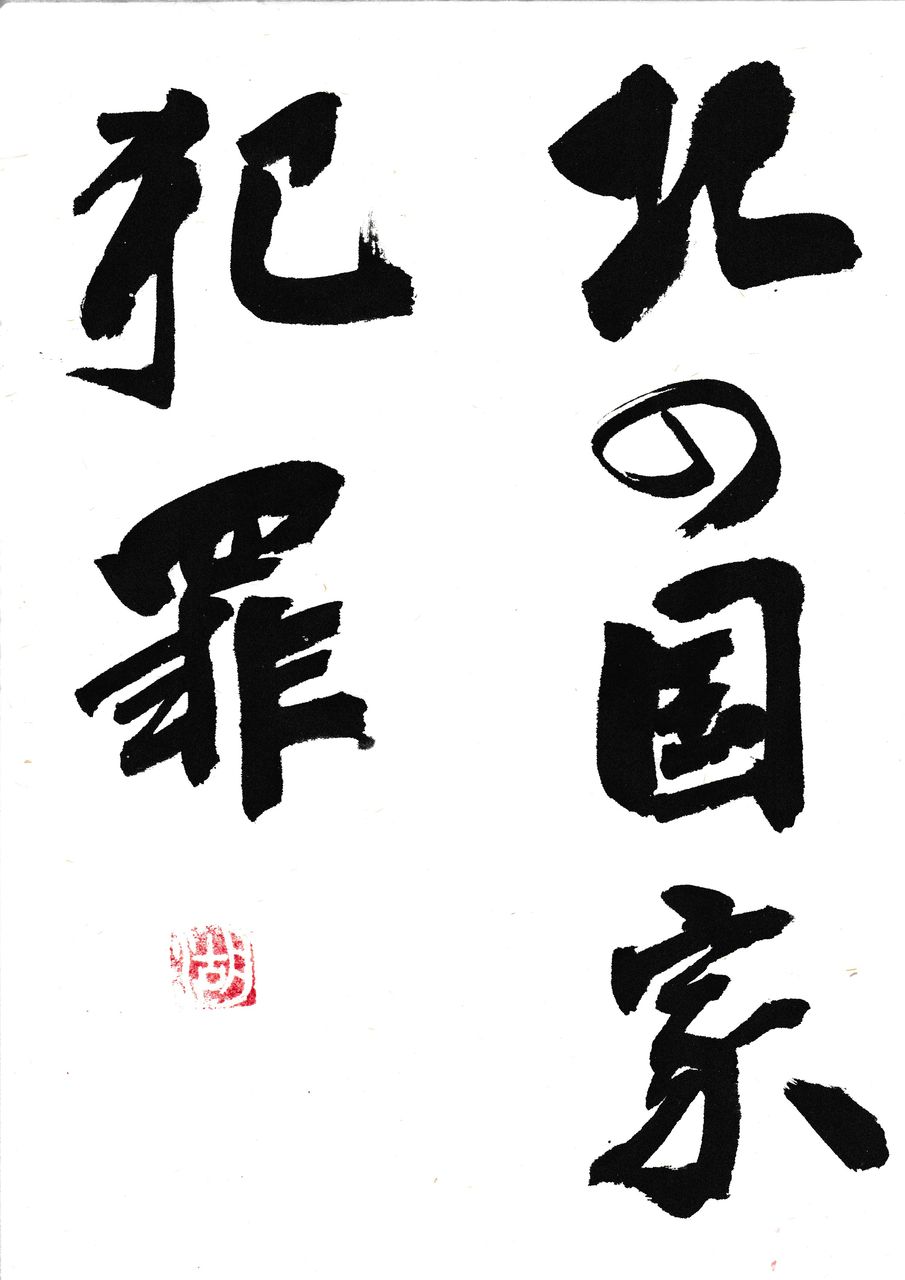 北の国家
犯罪
湖